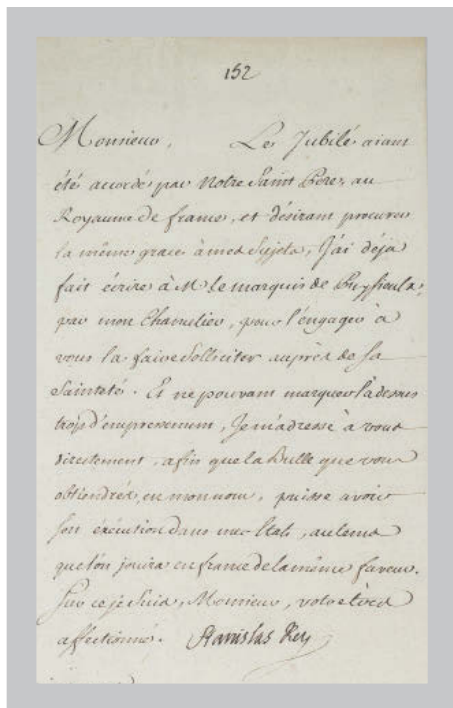 152
Monsieur, Le Jubilé aiant
été accordé par Notre Saint Pere, au
Royaume de france, et désirant procurer
la même grace à mes Sujets, J'ai déja
fait écrire à M. le marquis de Puysieulx,
par mon Chancelier, pour l'engager à
vous la faire solliciter auprès de Sa
Sainteté. Et ne pouvant marquer là dessus
trop d'empressement, Je m'adresse à vous
directement, afin que la Bulle que vous
obtiendrés, en mon nom, puisse avoir
son éxécution dans mes Etats, au tems
que l'on jouira en france de la même faveur.
Sur ce je suis, Monsieur, votre très
affectionné. Stanislas Roy